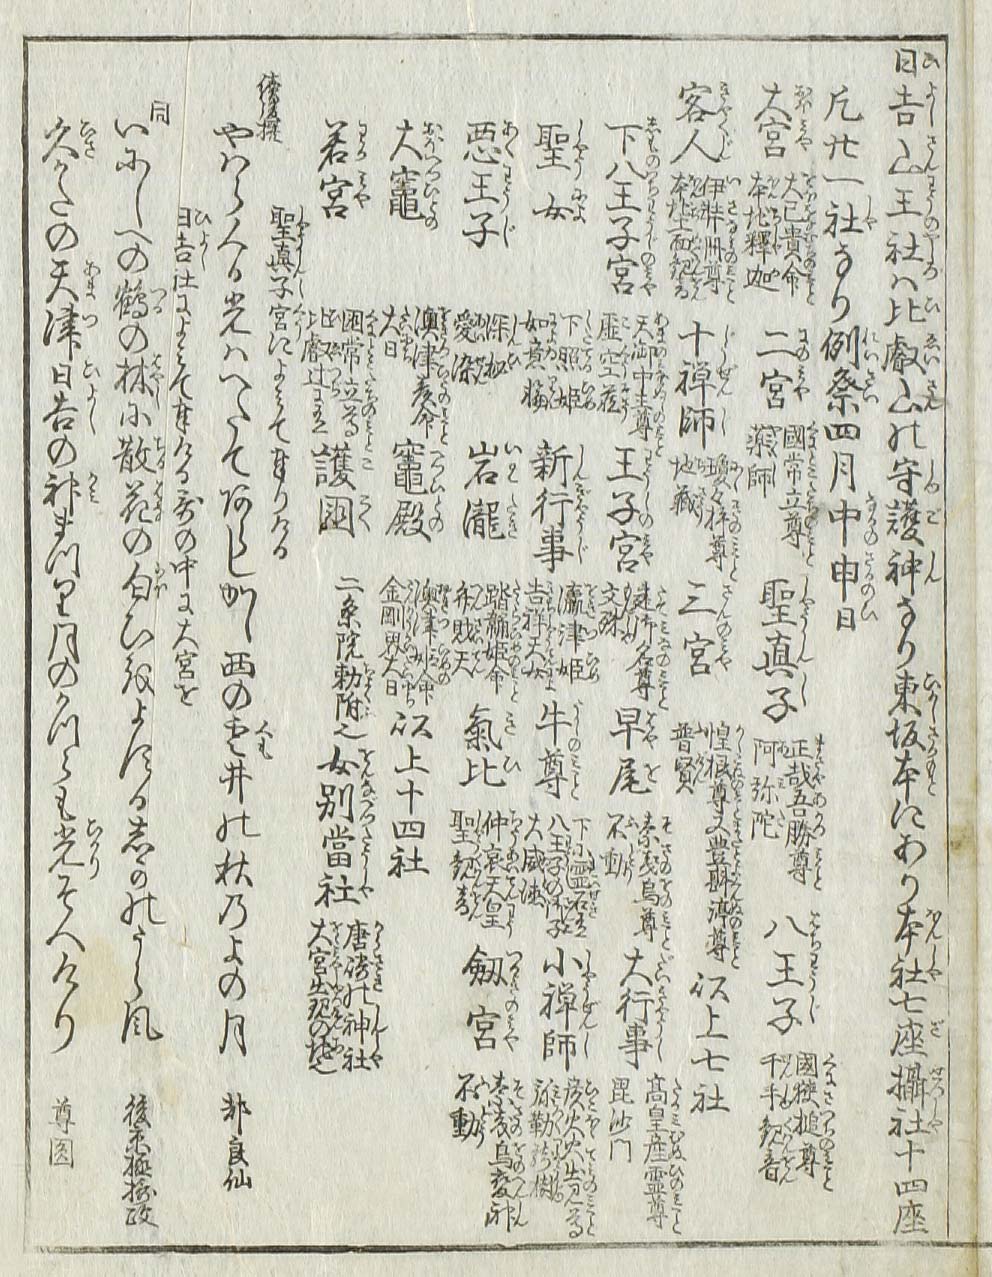 日吉山王社ハ比叡山の守護神なり東坂本にあり本社七座攝社十四座
凡廿一社なり例祭四月中申日
大宮 大己貴命 本地釋迦 二宮 國常立尊 藥師 聖真子 正哉吾勝尊 阿弥陀 八王子 國狹槌尊 千手観音
客人 伊弉冊尊 本地十一面観音 十禅師 瓊々杵尊 地藏 三宮 惶根尊又豊斟渟尊 普賢 以上七社
下八王子宮 天御中主尊 虚空蔵 王子宮 建御名尊 文殊 早尾 素戔烏尊 不動 大行事 高皇産霊尊 毘沙門
聖女 下照姫 如意輪 新行事 瀛津姫 吉祥天女 牛尊 下ニ霊石有 八王子の御子 大威徳 小禅師 彦火々出見尊 弥勒 龍樹
悪王子 深秘 愛染 岩瀧 踏鞴姫命 弁財天 氣比 仲哀天皇 聖観音 劔宮 素戔烏変神 不動
大竈 澳津彦命 大日 竈殿 澳津姫命 金剛界大日 以上十四社
若宮 國常立尊 比叡辻に有 護因 二条院勅附之 女別當社 唐崎の神社 大宮出現の地也
続後撰 聖真子宮によみて奉りける
やはらくる光ハへたてあらしかし西の雲井の秋のよの月 都良仙
同 日吉社によみて奉ける哥の中に大宮を
いにしへの鶴の林に散花の匂ひをよする志賀のうら風 後京極摂政
久かたの天津日吉の神まつり月のかつらも光そへけり 尊圓